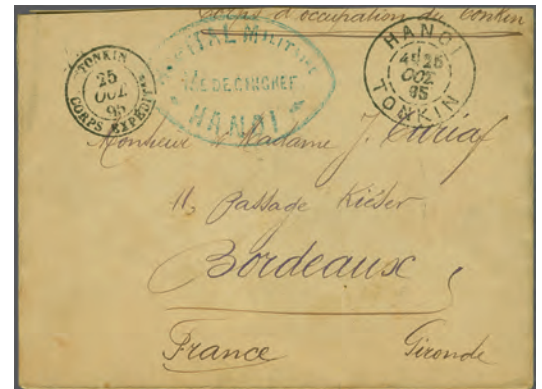 Corps d'occupation du Tonkin
TONKIN
25
OCT.
95
CORPS EXPEDIT
HOPITAL MILITAIRE
MEDECIN CHEF
HANOI
HANOI
25
OCT.
95
TONKIN
Monsieur Madame J.
11, Passage Kiéser
Bordeaux
France Gironde